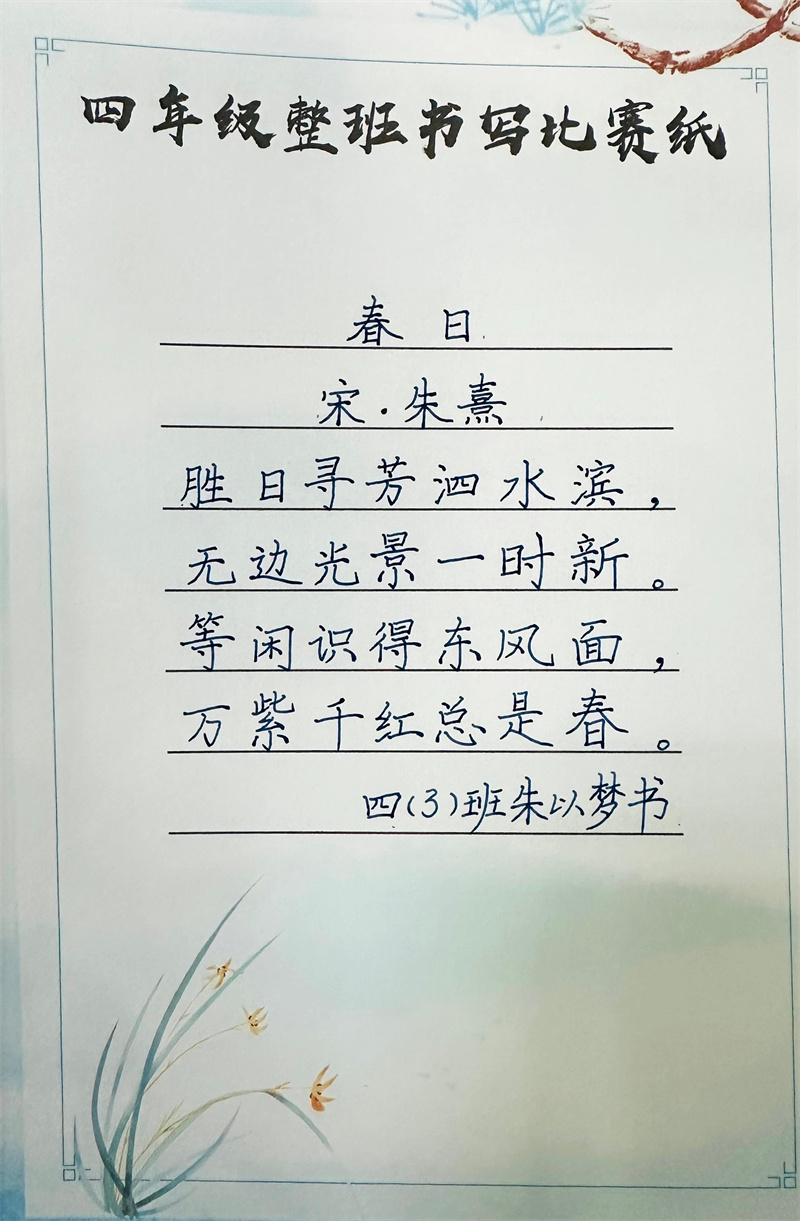 四年级整班书写比赛纸
春日
宋·朱熹
胜日寻芳泗水滨，
无边光景一时新。
等闲识得东风面，
万紫千红总是春。
四(3)班朱以梦书